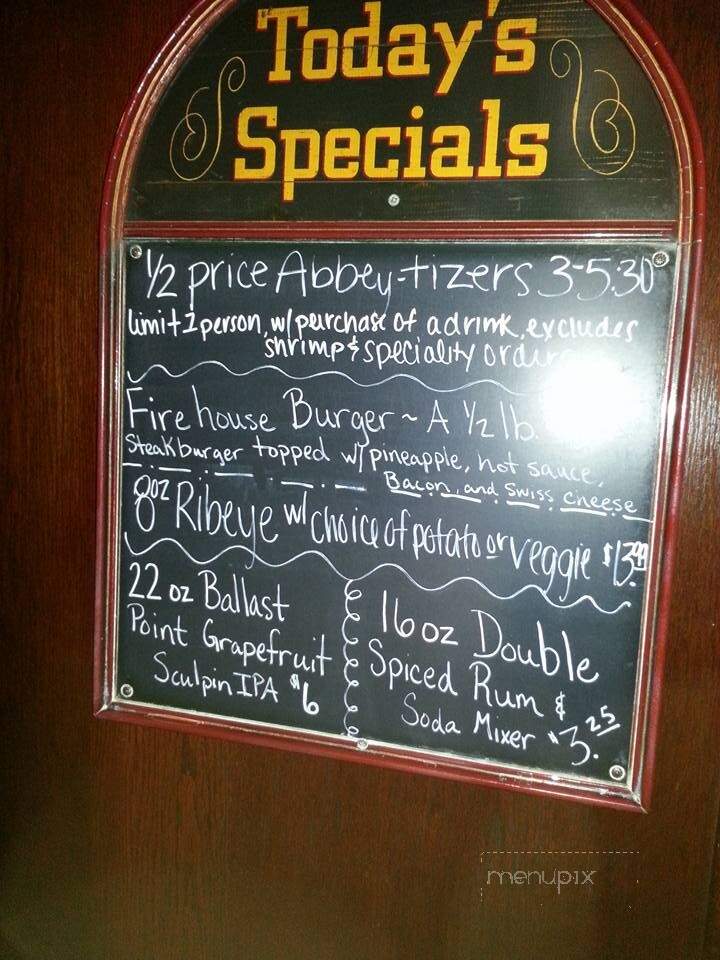 Today's
Specials
1/2 price Abbey-tizers 3-5:30
limit 1 person, w/ purchase of a drink, excludes
shrimp & speciality
Firehouse Burger ~ A 1/2 lb.
Steakburger topped w/ pineapple, hot sauce,
Bacon, and Swiss cheese
8oz Ribeye w/ choice of potato or veggie $13.99
22 oz Ballast
Point Grapefruit
Sculpin IPA $6
16 oz Double
Spiced Rum &
Soda Mixer $3.25
menupix